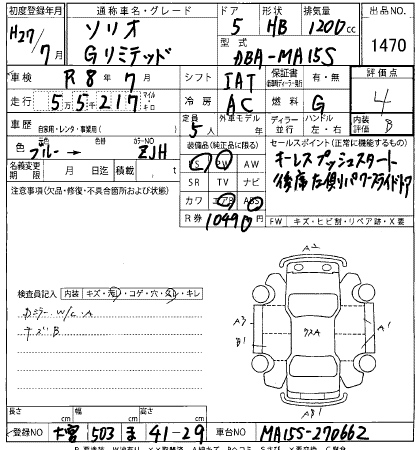 初度登録年月 通称車名・グレード ドア 形状 排気量 出品NO.
H27/7月 ソリオ Gリミテッド 5 HB 1200cc 1470
型式 DBA-MA15S
車検 R8年7月 シフト IAT 保証書 有・無 評価点
走行 5万5千217 マイル キロ 冷房 AC 燃料 G 4
車歴 自家用・レンタ・事業用( ) 定員 5人 外車モデル ディーラー 並行 ハンドル 左・右 内装評価 B
色 元色 ブルー → 色替 カラーNO ZJH 装備品(純正品に限る) セールスポイント(正常に機能するもの)
名義変更期限 月 日迄 積載 , t
LS PW AW
キーレスプッシュスタート
SR TV ナビ
後席左側パワースライドドア
注意事項(欠品・修復・不具合箇所および状態)
カワ エアB ABS
R券 10490円
FW キズ・ヒビ割・リペア跡・X要
検査員記入 内装 キズ・汚レ・コゲ・穴・スレ・キレ
DミラーW/C・A
キズB
A2
A3
B1
クスA
A1
AB1
長さ cm 幅 cm 高さ cm
登録NO 503 ま 41-29 車台NO MA15S-270662